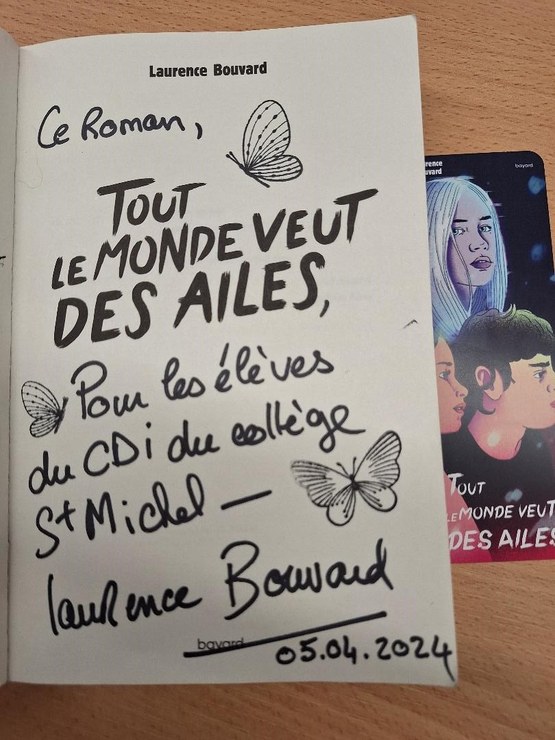 Laurence Bouvard
Ce Roman,
TOUT
LE MONDE VEUT
DES AILES,
Pour les élèves
du CDi du collège
St Michel —
laurence Bouvard
bayard
05.04.2024
rence
uvard
bayard
TOUT
LE MONDE VEUT
DES AILES